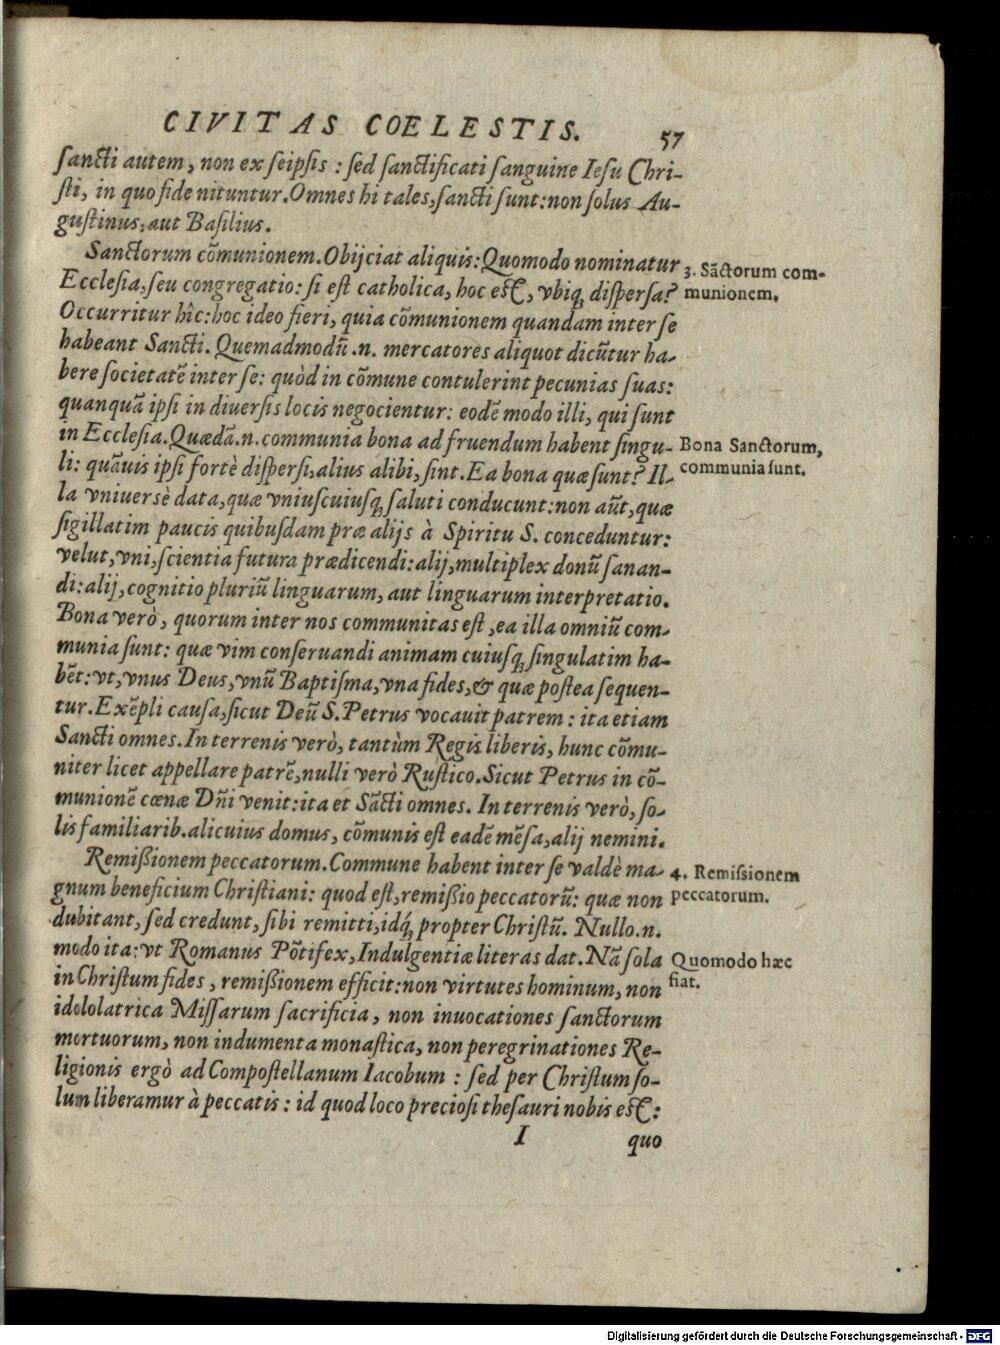 CIVITAS COELESTIS. 57
sancti autem, non ex seipsis : sed sanctificati sanguine Iesu Chri-
sti, in quo fide nituntur. Omnes hi tales, sancti sunt: non solus Au-
gustinus, aut Basilius.
Sanctorum cõmunionem. Obijciat aliquis: Quomodo nominatur
3. Sãctorum com-
munionem.
Ecclesia, seu congregatio: si est catholica, hoc est, vbiq; dispersa?
Occurritur hîc: hoc ideo fieri, quia cõmunionem quandam inter se
habeant Sancti. Quemadmodũ .n. mercatores aliquot dicũtur ha-
bere societatẽ inter se: quòd in cõmune contulerint pecunias suas:
quanquã ipsi in diuersis locis negocientur: eodẽ modo illi, qui sunt
in Ecclesia. Quædã .n. communia bona ad fruendum habent singu-
Bona Sanctorum,
communia sunt.
li: quãuis ipsi fortè dispersi, alius alibi, sint. Ea bona quæ sunt? Il-
la vniuersè data, quæ vniuscuiusq; saluti conducunt: non aũt, quæ
sigillatim paucis quibusdam præ alijs à Spiritu S. conceduntur:
velut, vni, scientia futura prædicendi: alij, multiplex donũ sanan-
di: alij, cognitio pluriũ linguarum, aut linguarum interpretatio.
Bona verò, quorum inter nos communitas est, ea illa omniũ com-
munia sunt: quæ vim conseruandi animam cuiusq; singulatim ha-
bẽt: vt, vnus Deus, vnũ Baptisma, vna fides, & quæ postea sequen-
tur. Exẽpli causa, sicut Deũ S. Petrus vocauit patrem : ita etiam
Sancti omnes. In terrenis verò, tantùm Regis liberis, hunc cõmu-
niter licet appellare patrẽ, nulli verò Rustico. Sicut Petrus in cõ-
munionẽ cœnæ Dñi venit: ita et Sãcti omnes. In terrenis verò, so-
lis familiarib. alicuius domus, cõmunis est eadẽ mẽsa, alij nemini.
Remißionem peccatorum. Commune habent inter se valdè ma-
4. Remissionem
peccatorum.
gnum beneficium Christiani: quod est, remißio peccatorũ: quæ non
dubitant, sed credunt, sibi remitti, idq́; propter Christũ. Nullo .n.
modo ita: vt Romanus Põtifex, Indulgentiæ literas dat. Nã sola
Quomodo hæc
fiat.
in Christum fides, remißionem efficit: non virtutes hominum, non
idololatrica Missarum sacrificia, non inuocationes sanctorum
mortuorum, non indumenta monastica, non peregrinationes Re-
ligionis ergò ad Compostellanum Iacobum : sed per Christum so-
lum liberamur à peccatis : id quod loco preciosi thesauri nobis est:
I quo
Digitalisierung gefördert durch die Deutsche Forschungsgemeinschaft - DFG